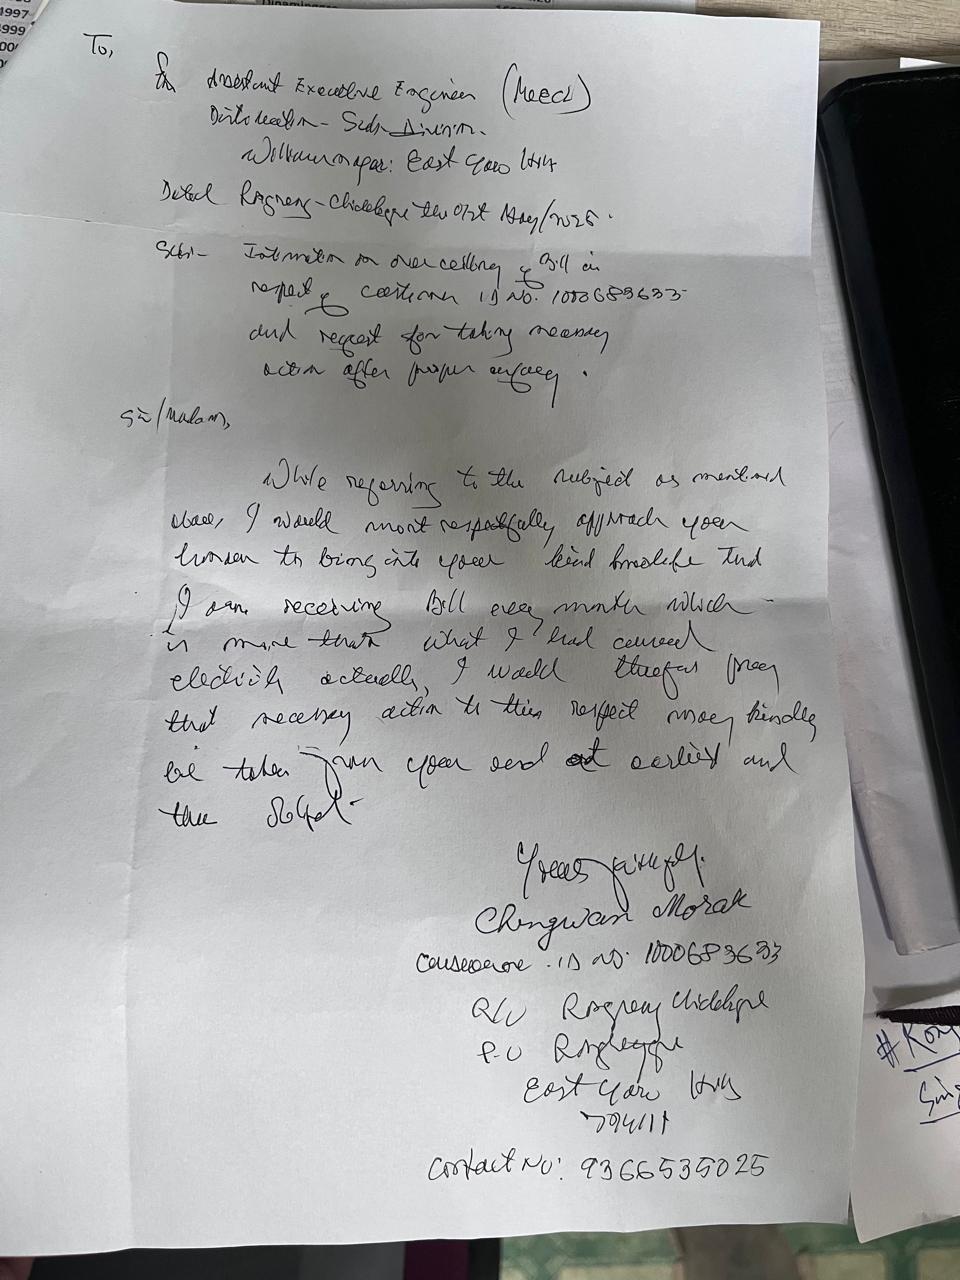 1997
1999
To,
The Assistant Executive Engineer (MeECL)
Distribution Sub-Division.
Williamnagar: East Garo Hills
Dated the 01st May/2025.
Sub:- Intimation on over of Bill in
respect of ID No. 1000683633
and request for taking necessary
action after proper enquiry.
Sir/Madam,
While referring to the subject as mentioned
above, I would most respectfully approach your
honour to bring into your kind knowledge that
I am receiving Bill every month which
is more than what I had
electricity actually, I would therefore pray
that necessary action to this respect may kindly
be taken from your end at earliest and
thus
Yours faithfully.
Chengwan Marak
ID No. 1000683633
R/O Rongreng
P.O
East Garo Hills
794111
Contact No: 9366535025